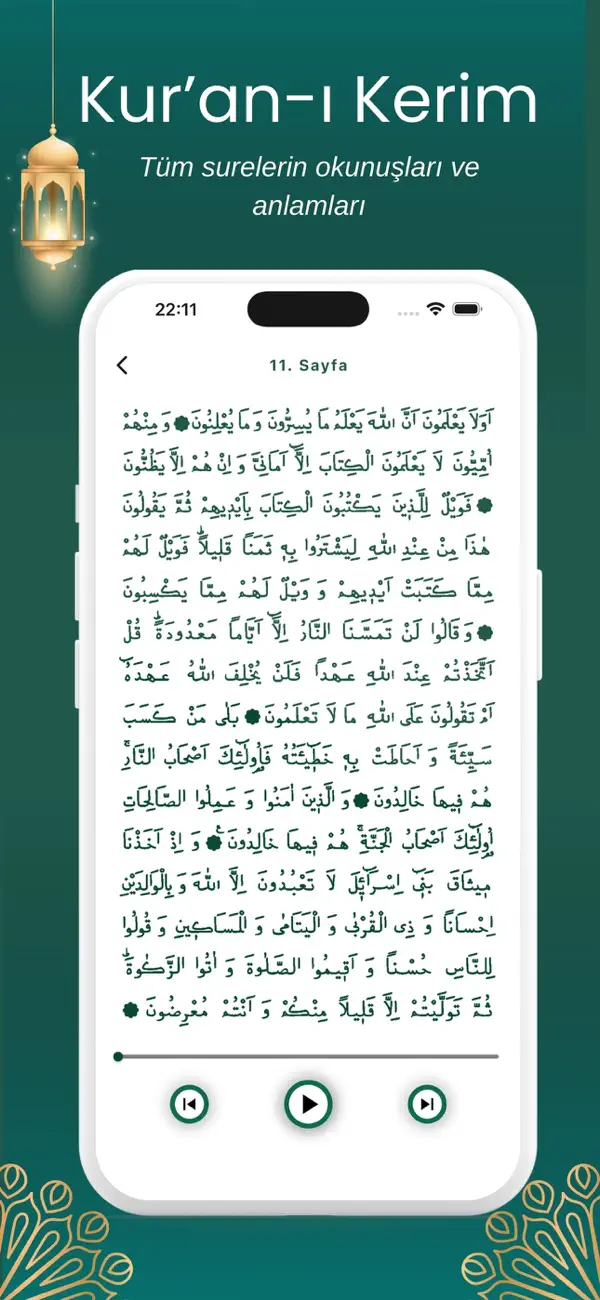 Kur’an-ı Kerim
Tüm surelerin okunuşları ve
anlamları
22:11
11. Sayfa
اَوَلَا يَعْلَمُونَ اَنَّ اللّٰهَ يَعْلَمُ مَا يُسِرُّونَ وَ مَا يُعْلِنُونَ ۞ وَ مِنْهُمْ
اُمِّيُّونَ لَا يَعْلَمُونَ الْكِتَابَ اِلَّٓا اَمَانِيَّ وَ اِنْ هُمْ اِلَّا يَظُنُّونَ
۞ فَوَيْلٌ لِلَّذ۪ينَ يَكْتُبُونَ الْكِتَابَ بِاَيْد۪يهِمْ ثُمَّ يَقُولُونَ
هٰذَا مِنْ عِنْدِ اللّٰهِ لِيَشْتَرُوا بِه۪ ثَمَنًا قَل۪يلًاۜ فَوَيْلٌ لَهُمْ
مِمَّا كَتَبَتْ اَيْد۪يهِمْ وَ وَيْلٌ لَهُمْ مِمَّا يَكْسِبُونَ
۞ وَ قَالُوا لَنْ تَمَسَّنَا النَّارُ اِلَّٓا اَيَّامًا مَعْدُودَةًۜ قُلْ
اَتَّخَذْتُمْ عِنْدَ اللّٰهِ عَهْدًا فَلَنْ يُخْلِفَ اللّٰهُ عَهْدَهُٓ
اَمْ تَقُولُونَ عَلَى اللّٰهِ مَا لَا تَعْلَمُونَ ۞ بَلٰى مَنْ كَسَبَ
سَيِّئَةً وَ اَحَاطَتْ بِه۪ خَط۪ٓيـَٔتُهُ فَاُو۬لٰٓئِكَ اَصْحَابُ النَّارِۚ
هُمْ ف۪يهَا خَالِدُونَ ۞ وَ الَّذ۪ينَ اٰمَنُوا وَ عَمِلُوا الصَّالِحَاتِ
اُو۬لٰٓئِكَ اَصْحَابُ الْجَنَّةِۚ هُمْ ف۪يهَا خَالِدُونَ۟ ۞ وَ اِذْ اَخَذْنَا
م۪يثَاقَ بَن۪ٓي اِسْرَٓائ۪لَ لَا تَعْبُدُونَ اِلَّا اللّٰهَ وَ بِالْوَالِدَيْنِ
اِحْسَانًا وَ ذِي الْقُرْبٰى وَ الْيَتَامٰى وَ الْمَسَاك۪ينِ وَ قُولُوا
لِلنَّاسِ حُسْنًا وَ اَق۪يمُوا الصَّلٰوةَ وَ اٰتُوا الزَّكٰوةَۜ
ثُمَّ تَوَلَّيْتُمْ اِلَّا قَل۪يلًا مِنْكُمْ وَ اَنْتُمْ مُعْرِضُونَ ۞